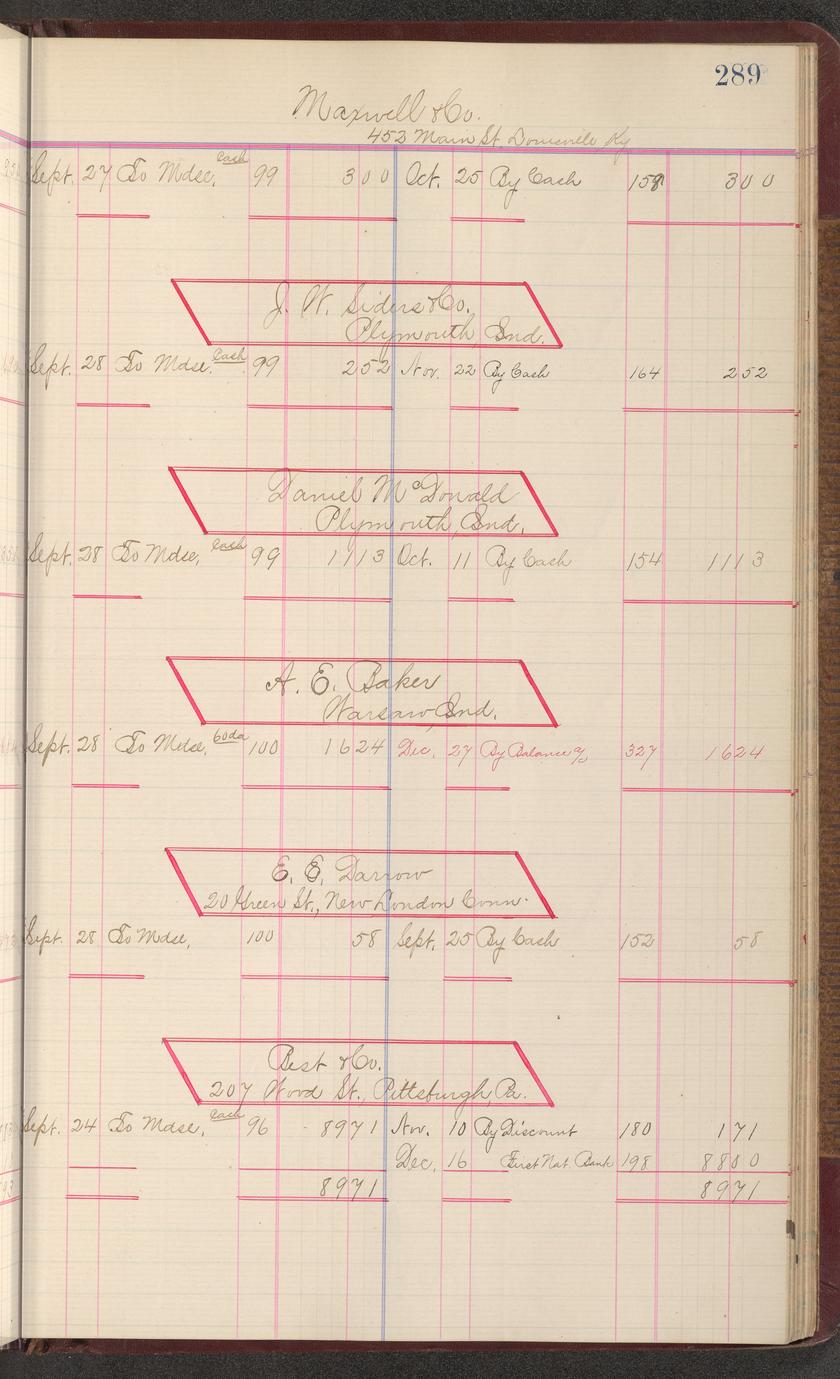 289
Maxwell & Co.
453 Main St. Louisville Ky
Sept. 27 To Mdse, Cash 99 300 Oct. 25 By Cash 158 300
J. W. Siders & Co.
Plymouth Ind.
Sept. 28 To Mdse. Cash 99 252 Nov. 22 By Cash 164 252
Daniel McDonald
Plymouth, Ind.
Sept. 28 To Mdse, Cash 99 1113 Oct. 11 By Cash 154 1113
A. E. Baker
Warsaw, Ind.
Sept. 28 To Mdse, 60da 100 1624 Dec. 27 By Balance % 327 1624
E. E. Darrow
20 Green St., New London Conn.
Sept. 28 To Mdse, 100 58 Sept. 25 By Cash 152 58
Best & Co.
207 Wood St., Pittsburgh, Pa.
Sept. 24 To Mdse, Cash 96 8971 Nov. 10 By Discount 180 171
Dec. 16 First Nat. Bank 198 8800
8971 8971